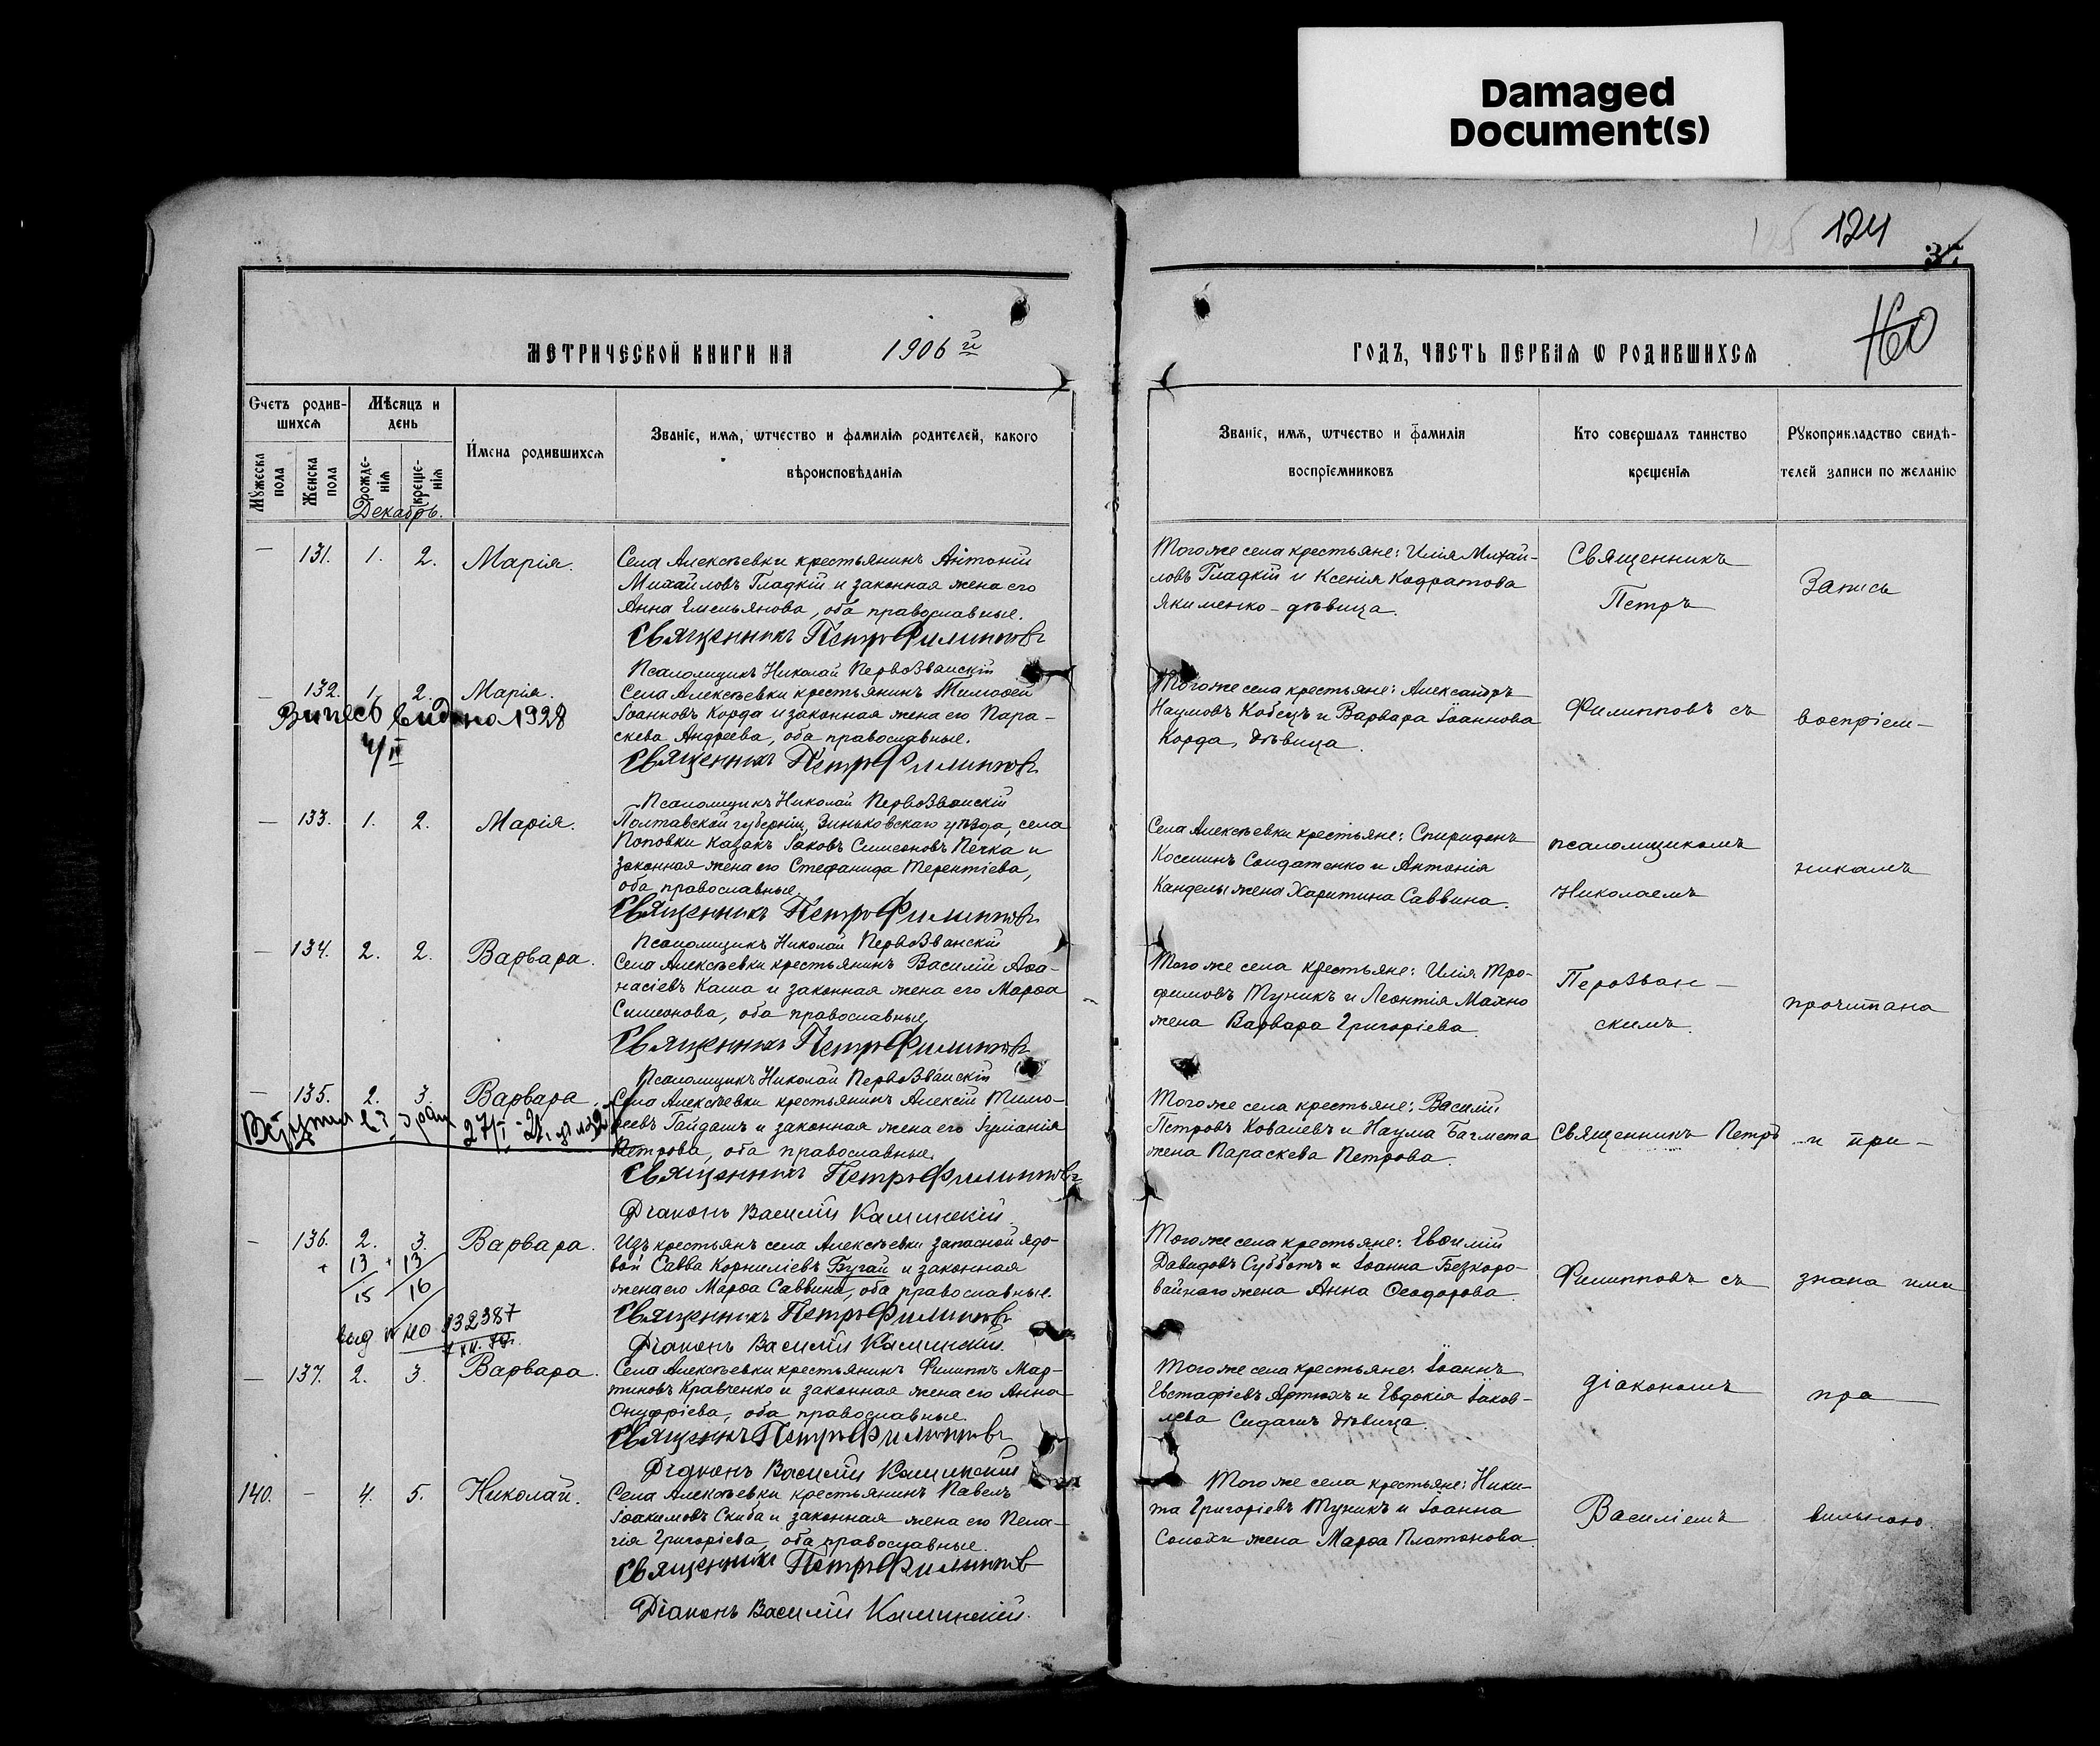 Damaged
Document(s)
124
МЕТРИЧЕСКОЙ КНИГИ НА 1906 й
ГОДЪ, ЧАСТЬ ПЕРВАЯ Ѡ РОДИВШИХСЯ
160
Счетъ родив-
шихся
Мѣсяцъ и
день
Имена родившихся
Званіе, имя, ѡтчество и фамилія родителей, какого
вѣроисповѣданія
Званіе, имя, ѡтчество и фамилія
воспріемниковъ
Кто совершалъ таинство
крещенія
Рукоприкладство свидѣ-
телей записи по желанію
Мужеска
пола
Женска
пола
рожде-
нія
креще-
нія
Декабрь.
— 131. 1. 2. Марія.
Села Алексѣевки крестьянинъ Антоній
Михайловъ Гладкій и законная жена его
Анна Емельянова, оба православные.
Священникъ Петръ Филипповъ
Псаломщикъ Николай Первозванскій
Того же села крестьяне: Илія Михай-
ловъ Гладкій и Ксенія Кодратова
Якименко - дѣвица.
Священникъ
Петръ
Запись
— 132. 1. 2. Марія.
Випесь видано 1928
4/II
Села Алексѣевки крестьянинъ Тимоѳей
Іоанновъ Корда и законная жена его Пара-
скева Андреева, оба православные.
Священникъ Петръ Филипповъ
Псаломщикъ Николай Первозванскій
Того же села крестьяне: Александръ
Наумовъ Кобецъ и Варвара Іоаннова
Корда, дѣвица.
Филипповъ съ
воспріем-
— 133. 1. 2. Марія.
Полтавской губерніи, Зиньковскаго уѣзда, села
Поповки казакъ Іаковъ Симеоновъ Печка и
законная жена его Стефанида Терентіева,
оба православные.
Священникъ Петръ Филипповъ
Псаломщикъ Николай Первозванскій
Села Алексѣевки крестьяне: Спиридонъ
Косминъ Солдатенко и Антонія
Канделы жена Харитина Саввина.
псаломщикомъ
Николаемъ
никамъ
— 134. 2. 2. Варвара.
Села Алексѣевки крестьянинъ Василій Аѳа-
насіевъ Каша и законная жена его Марѳа
Симеонова, оба православные
Священникъ Петръ Филипповъ
Псаломщикъ Николай Первозванскій
Того же села крестьяне: Илія Тро-
фимовъ Туникъ и Леонтія Махно
жена Варвара Григоріева.
Перозван-
скимъ.
прочитана
— 135. 2. 3. Варвара.
Села Алексѣевки крестьянинъ Алексій Тимо-
ѳеевъ Гайдашъ и законная жена его Іуліанія
Петрова, оба православные.
Священникъ Петръ Филипповъ
Діаконъ Василій Калинскій
Того же села крестьяне: Василій
Петровъ Ковалевъ и Наума Багмета
жена Параскева Петрова.
Священникъ Петръ
и при-
— 136. 2. 3. Варвара.
+ 13 + 13
15 16
832387
Изъ крестьянъ села Алексѣевки запасной рядо-
вой Савва Корниліевъ Бугай и законная
жена его Марѳа Саввина, оба православные.
Священникъ Петръ Филипповъ
Діаконъ Василій Калинскій.
Того же села крестьяне: Евѳимій
Давидовъ Субботъ и Іоанна Безкоро-
вайнаго жена Анна Ѳеодорова.
Филипповъ съ
знана ими
— 137. 2. 3. Варвара.
Села Алексѣевки крестьянинъ Филиппъ Мар-
тиновъ Кравченко и законная жена его Анна
Онуфріева, оба православные.
Священникъ Петръ Филипповъ
Діаконъ Василій Калинскій
Того же села крестьяне: Іоаннъ
Евстафіевъ Артюхъ и Евдокія Іаков-
лева дѣвица.
діакономъ
пра
140. — 4. 5. Николай.
Села Алексѣевки крестьянинъ Павелъ
Іоакимовъ Скиба и законная жена его Пела-
гія Григоріева, оба православные.
Священникъ Петръ Филипповъ
Діаконъ Василій Калинскій.
Того же села крестьяне: Ники-
та Григоріевъ Туникъ и Іоанна
Солохи жена Марѳа Платонова
Василіемъ
вильною.